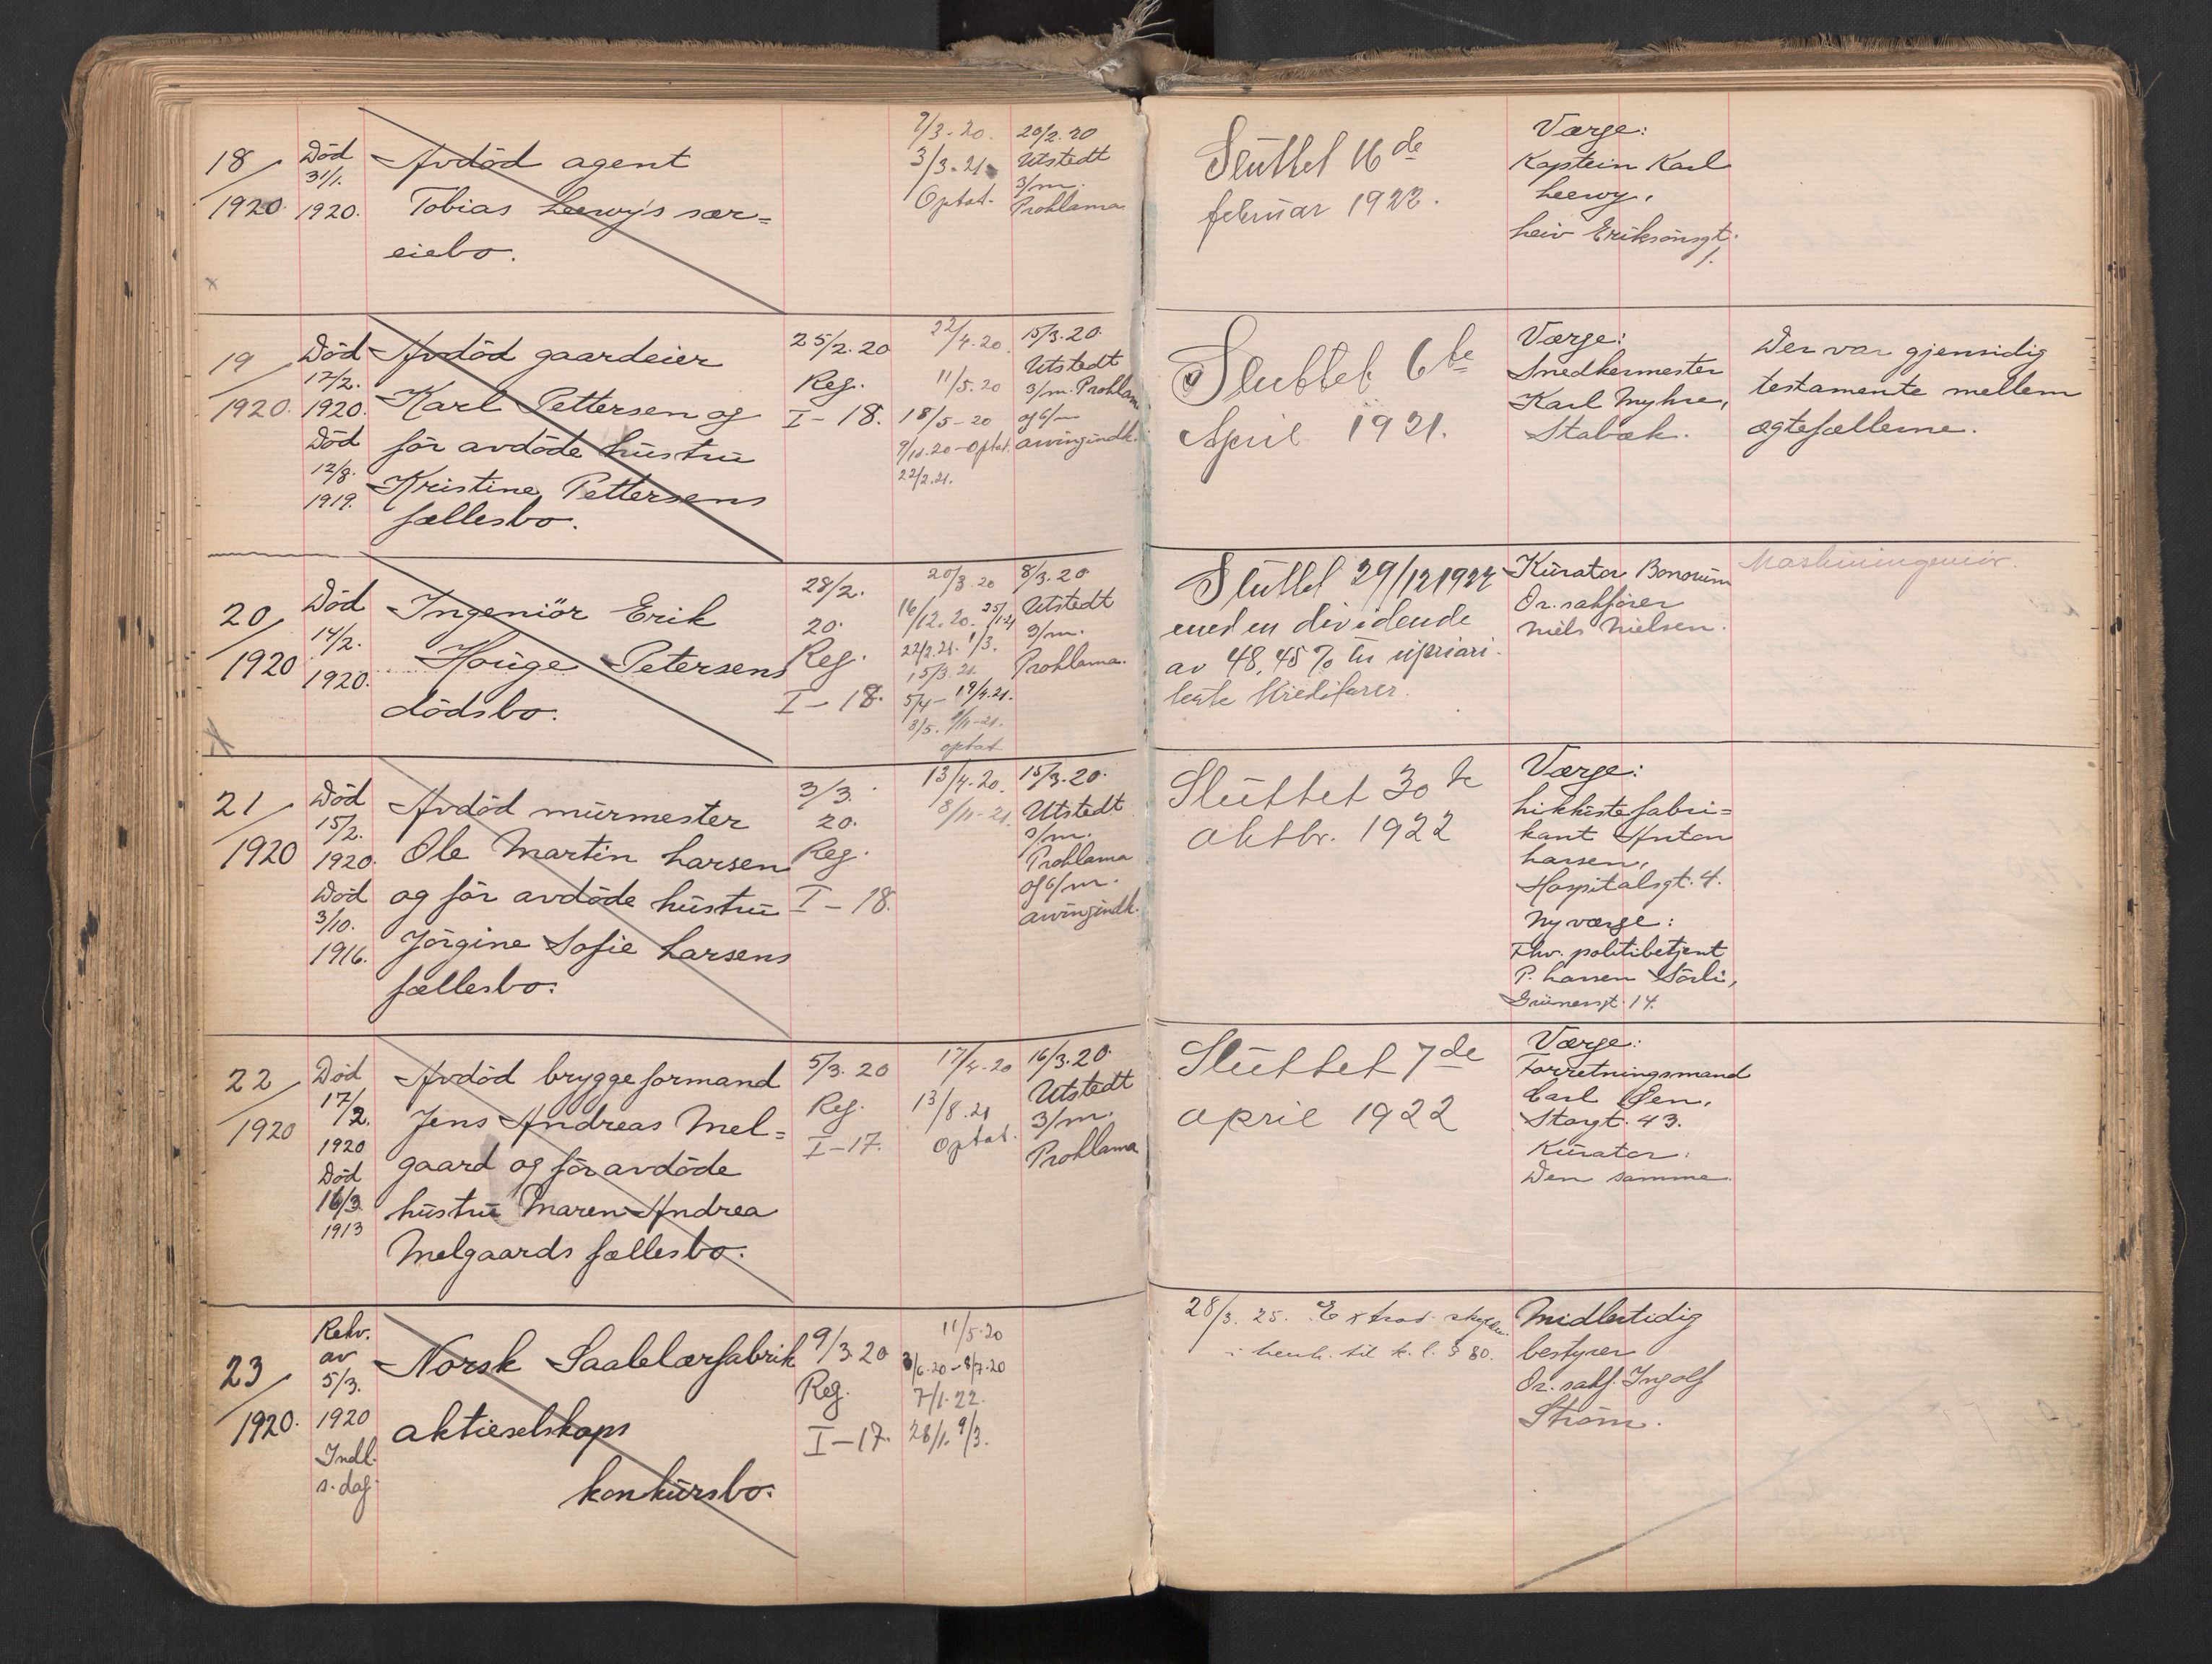 18/1920.
Død
31/1.
1920.
Avdød agent
Tobias Leewy's sær=
eiebo.
9/3-20.
3/3-21
Optat.
20/2.20
Utstedt
3/m.
Proklama
Sluttet 16de
februar 1922.
Værge:
Kaptein Karl
Leewy,
Leiv Eriksønsgt.
1.
19/1920.
Død
17/2.
1920.
Død
12/8.
1919.
Avdød gaardeier
Karl Pettersen og
før avdøde hustru
Kristine Pettersens
fællesbo.
25/2.20
Reg.
I-18.
22/4.20.
11/5.20
18/5-20
9/11.20-Optat.
22/2.21.
15/3.20.
Utstedt
3/m. Proklam
og 6/m
arvingindk.
Sluttet 6te
April 1921.
Værge:
Snedkermester
Karl Myhre,
Stabæk.
Der var gjensidig
testamente mellem
ægtefællerne.
20/1920
Død
14/2.
1920.
Ingeniør Erik
Houge Petersens
dødsbo.
28/2.
20.
Reg.
I-18.
20/3.20
16/12.20. 25/1.21
22/2.21. 1/3.
15/3.21.
5/4-19/4.21.
3/5. 9/11-21.
optat
8/3.20
Utstedt
3/m.
Proklama.
Sluttet 29/12 1922
med en dividende
av 48,45% til upriori-
terte Kreditorer.
Kurator Bonorum
Or. sakfører
Niels Nielsen.
Maskiningeniør.
21/1920
Død
15/2.
1920.
Død
3/10.
1916.
Avdød murmester
Ole Martin Larsen
og før avdøde hustru
Jørgine Sofie Larsens
fællesbo.
3/3.
20.
Reg.
I-18.
13/4.20.
8/11-21.
15/3.20.
Utstedt
3/m.
Proklama
og 6/m.
arvingindk.
Sluttet 30te
oktbr. 1922
Værge:
Likkistefabri=
kant Anton
Larsen,
Hospitalsgt. 4.
Ny værge:
Fhv. politibetjent
P. Larsen Sørli,
Grünersgt. 14.
22/1920
Død
17/2.
1920
Død
16/3
1913
Avdød bryggeformand
Jens Andreas Mel=
gaard og før avdøde
hustru Maren Andrea
Melgaards fællesbo.
5/3.20
Reg.
I-17.
17/4.20
13/8.21
Optat.
16/3.20.
Utstedt
3/m.
Proklama
Sluttet 7de
april 1922
Værge:
Forretningsmand
Carl Øen,
Storgt. 43.
Kurator:
Den samme.
23/1920.
Rekv.
av
5/3.
1920
Indk.
s. dag.
Norsk Saalelærfabrik
aktieselskaps
konkursbo.
9/3.20
Reg.
I-17.
11/5.20
3/6.20-8/7.20
7/1.22.
28/1. 9/3.
28/3. 25. Extrad.
i henh. til k.l. § 80.
Midlertidig
bestyrer
Or. sakf. Ingolf
Strøm.